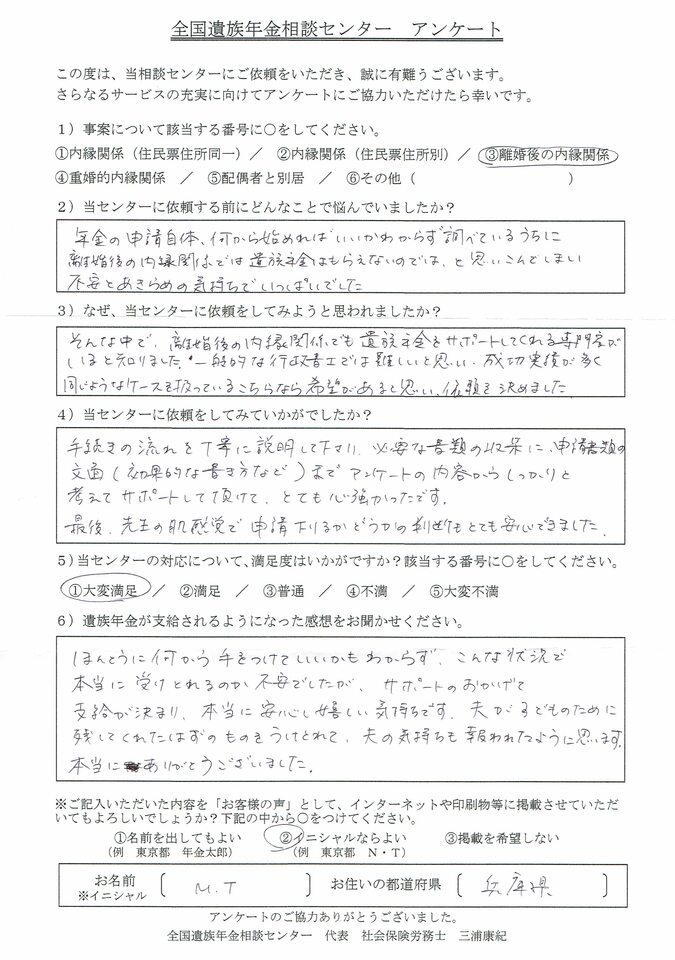 全国遺族年金相談センター　アンケート
この度は、当相談センターにご依頼をいただき、誠に有難うございます。
さらなるサービスの充実に向けてアンケートにご協力いただけたら幸いです。
1）事案について該当する番号に○をしてください。
①内縁関係（住民票住所同一）／　②内縁関係（住民票住所別）／　③離婚後の内縁関係
④重婚的内縁関係　／　⑤配偶者と別居　／　⑥その他（　　　　　　　　　　）
2）当センターに依頼する前にどんなことで悩んでいましたか？
年金の申請自体、何から始めればいいかわからず調べているうちに
離婚後の内縁関係では遺族年金はもらえないのでは、と思いこんでしまい
不安とあきらめの気持ちでいっぱいでした
3）なぜ、当センターに依頼をしてみようと思われましたか？
そんな中で、離婚後の内縁関係でも遺族年金をサポートしてくれる専門家が
いると知りました。一般的な行政書士では難しいと思い、成功実績が多く
同じようなケースを扱っているこちらなら希望があると思い、依頼を決めました
4）当センターに依頼をしてみていかがでしたか？
手続きの流れを丁寧に説明して下さり、必要な書類の収集に、申請書類の
文面（効果的な書き方など）までアンケートの内容からしっかりと
考えてサポートして頂けて、とても心強かったです。
最後、先生の肌感覚で申請下りるかどうかの判断もとても安心できました。
5）当センターの対応について、満足度はいかがですか？該当する番号に○をしてください。
①大変満足　／　②満足　／　③普通　／　④不満　／　⑤大変不満
6）遺族年金が支給されるようになった感想をお聞かせください。
ほんとうに何から手をつけていいかもわからず、こんな状況で
本当に受けとれるのか不安でしたが、サポートのおかげで
支給が決まり、本当に安心し嬉しい気持ちです。夫が子どものために
残してくれたはずのものをうけとれて、夫の気持ちも報われたように思います。
本当にありがとうございました。
※ご記入いただいた内容を「お客様の声」として、インターネットや印刷物等に掲載させていただ
いてもよろしいでしょうか？下記の中から○をつけてください。
①名前を出してもよい　②イニシャルならよい　③掲載を希望しない
（例　東京都　年金太郎）　（例　東京都　N・T）
お名前　M.T　お住いの都道府県　兵庫県
※イニシャル
アンケートのご協力ありがとうございました。
全国遺族年金相談センター　代表　社会保険労務士　三浦康紀